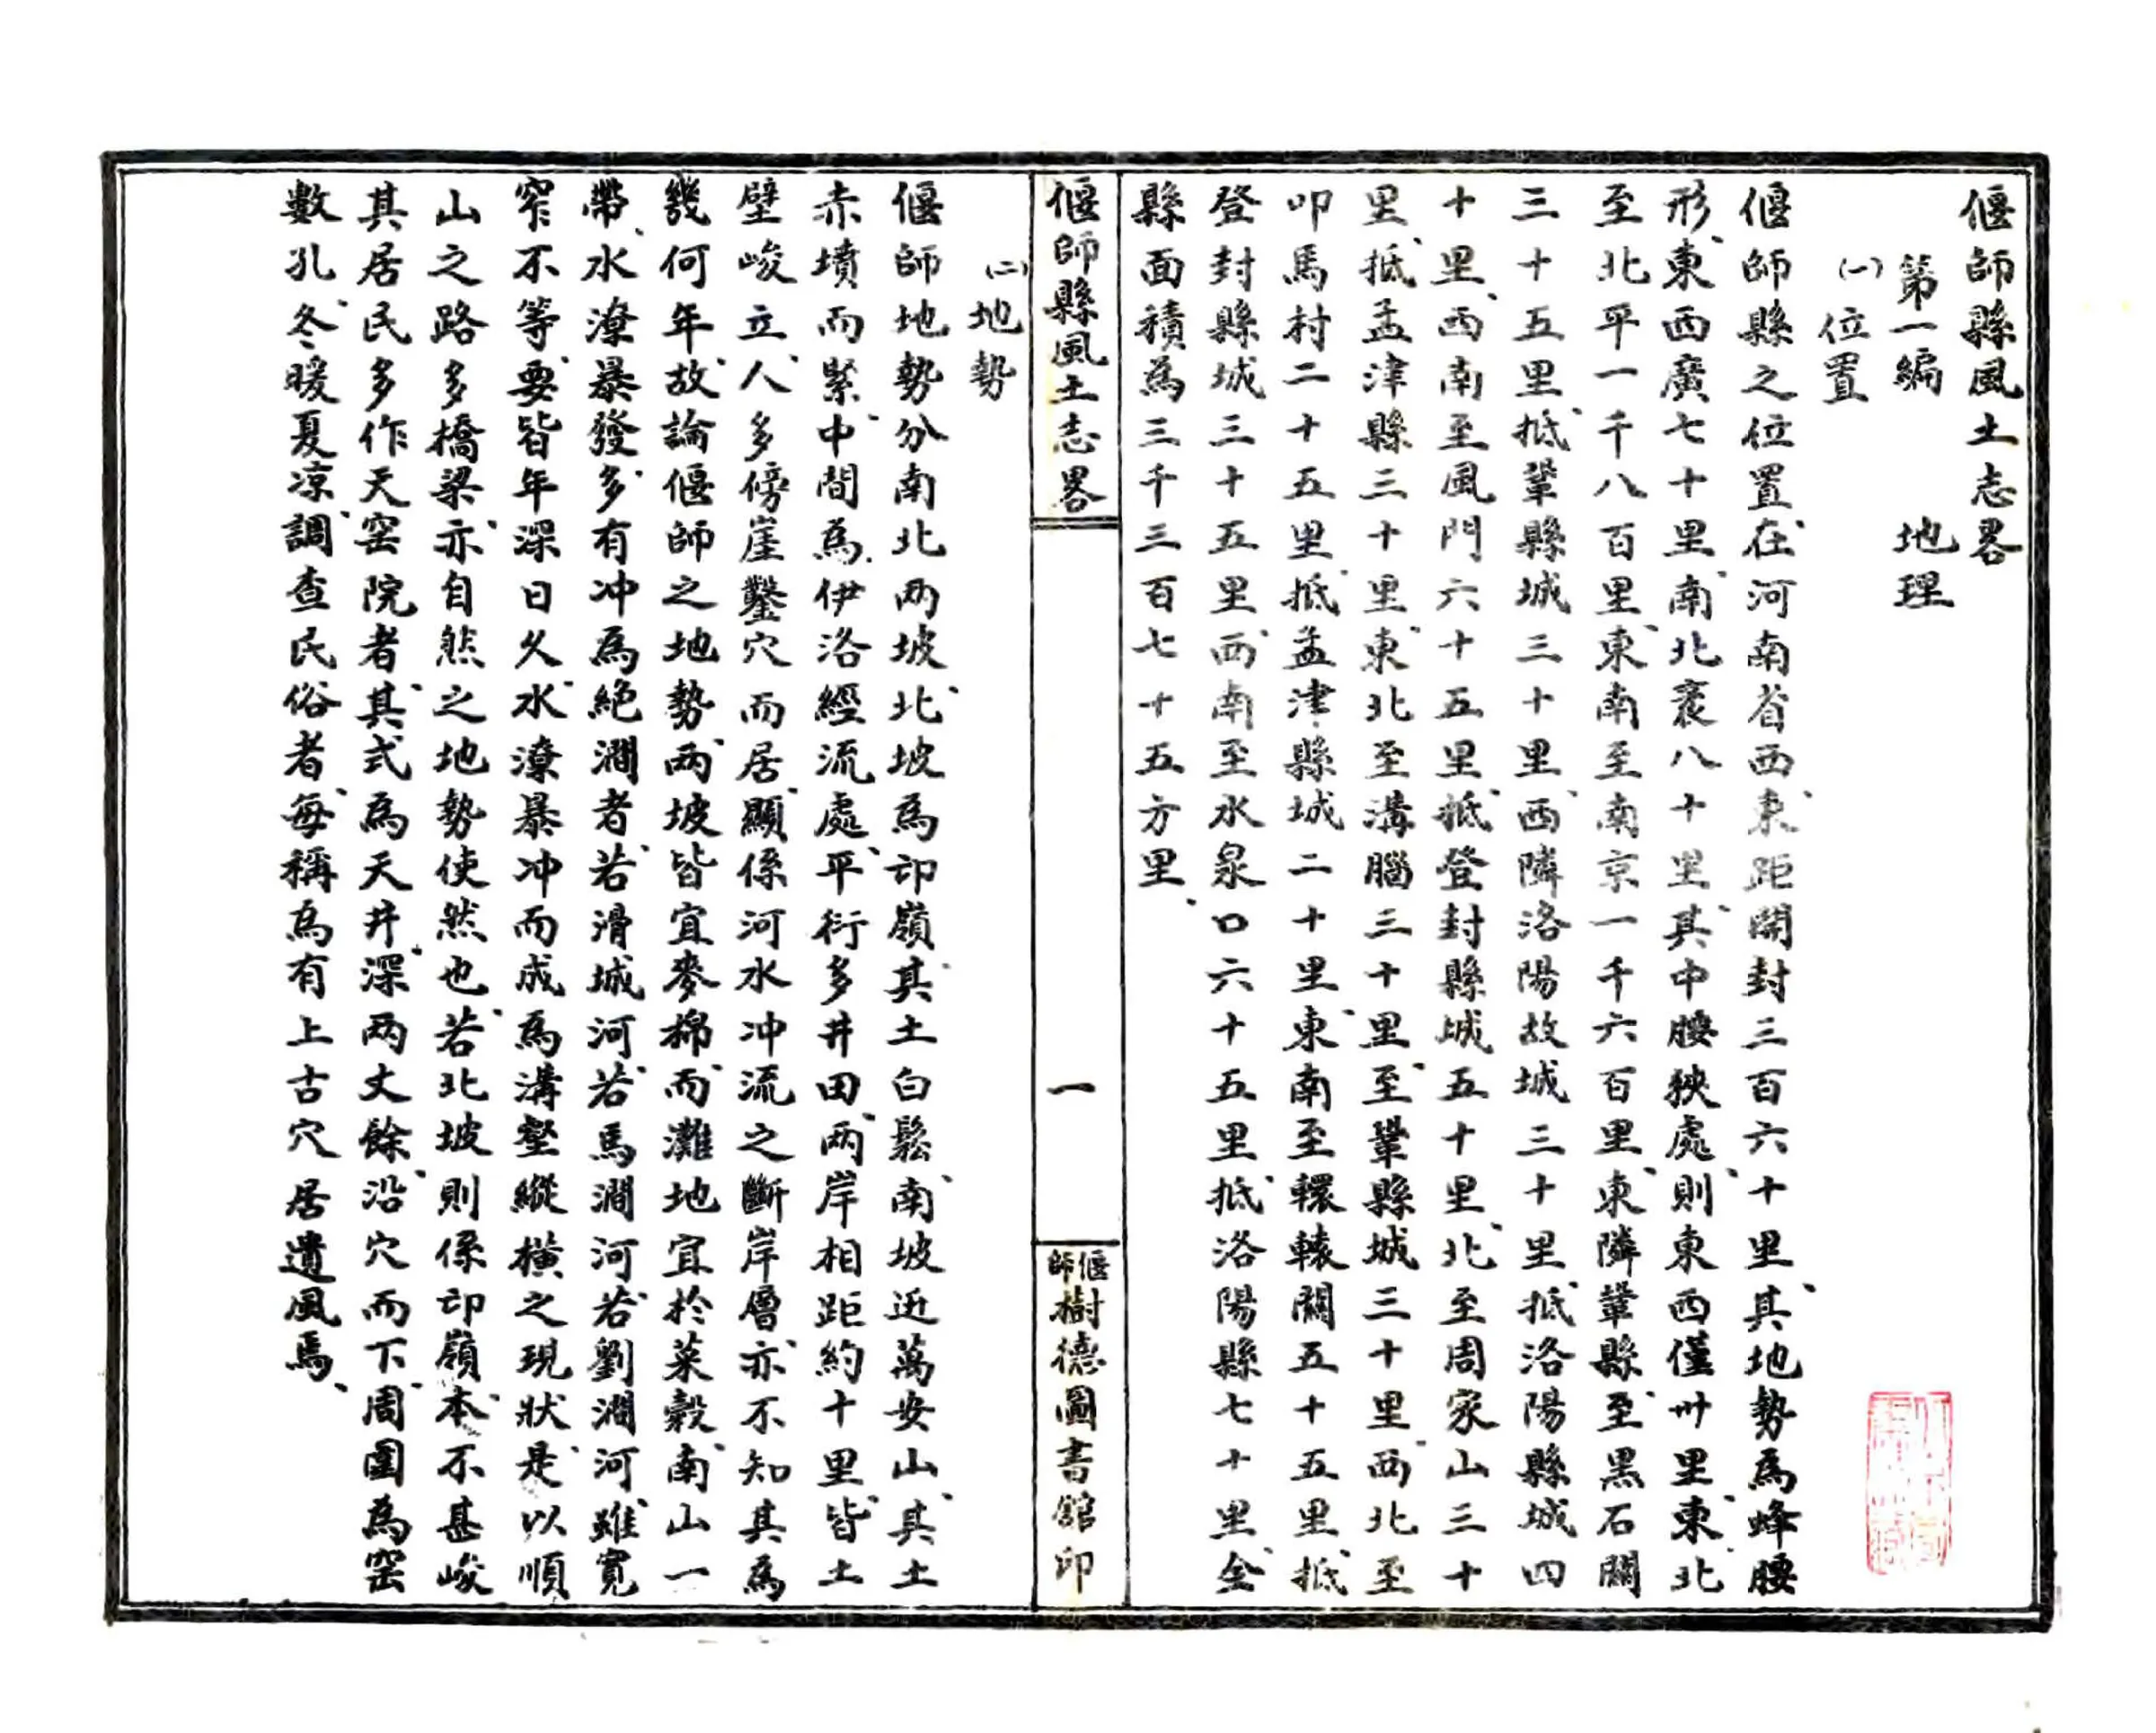 偃師縣風土志畧
第一編 地理
(一)位置
偃師縣之位置、在河南省西東、距開封三百六十里、其地勢為蜂腰
形、東西廣七十里、南北袤八十里、其中腰狹處、則東西僅卅里、東北
至北平一千八百里、東南至南京一千六百里、東隣鞏縣、至黑石關
三十五里、抵鞏縣城三十里、西隣洛陽故城三十里、抵洛陽縣城四
十里、西南至風門六十五里、抵登封縣城五十里、北至周家山三十
里、抵孟津縣三十里、東北至溝腦三十里、至鞏縣城三十里、西北至
叩馬村二十五里、抵孟津縣城二十里、東南至轘轅關五十五里、抵
登封縣城三十五里、西南至水泉口六十五里、抵洛陽縣七十里、全
縣面積為三千三百七十五方里、
偃師縣風土志畧
一
偃師樹德圖書舘印
(二)地勢
偃師地勢分南北两坡、北坡為邙嶺、其土白鬆、南坡近萬安山、其土
赤墳而緊、中間為伊洛經流處、平衍多井田、两岸相距約十里、皆土
壁峻立、人多傍崖鑿穴而居、顯係河水冲流之斷岸層、亦不知其為
幾何年、故論偃師之地勢、两坡皆宜麥棉、而灘地宜於菜穀、南山一
帶、水潦暴發、多有冲為絕澗者、若滑城河、若馬澗河、若劉澗河、雖寛
窄不等、要皆年深日久、水潦暴冲而成為溝壑縱橫之現狀、是以順
山之路多橋梁、亦自然之地勢使然也、若北坡則係邙嶺、本不甚峻
其居民多作天窑院者、其式為天井、深两丈餘、沿穴而下、周圍為窑
數孔、冬暖夏凉、調查民俗者、每稱為有上古穴居遺風焉、